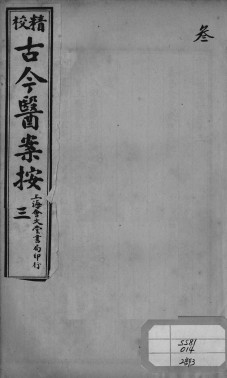 精校
古今醫案按
三
上海會文堂書局印行
叁
SSB1
014
2893